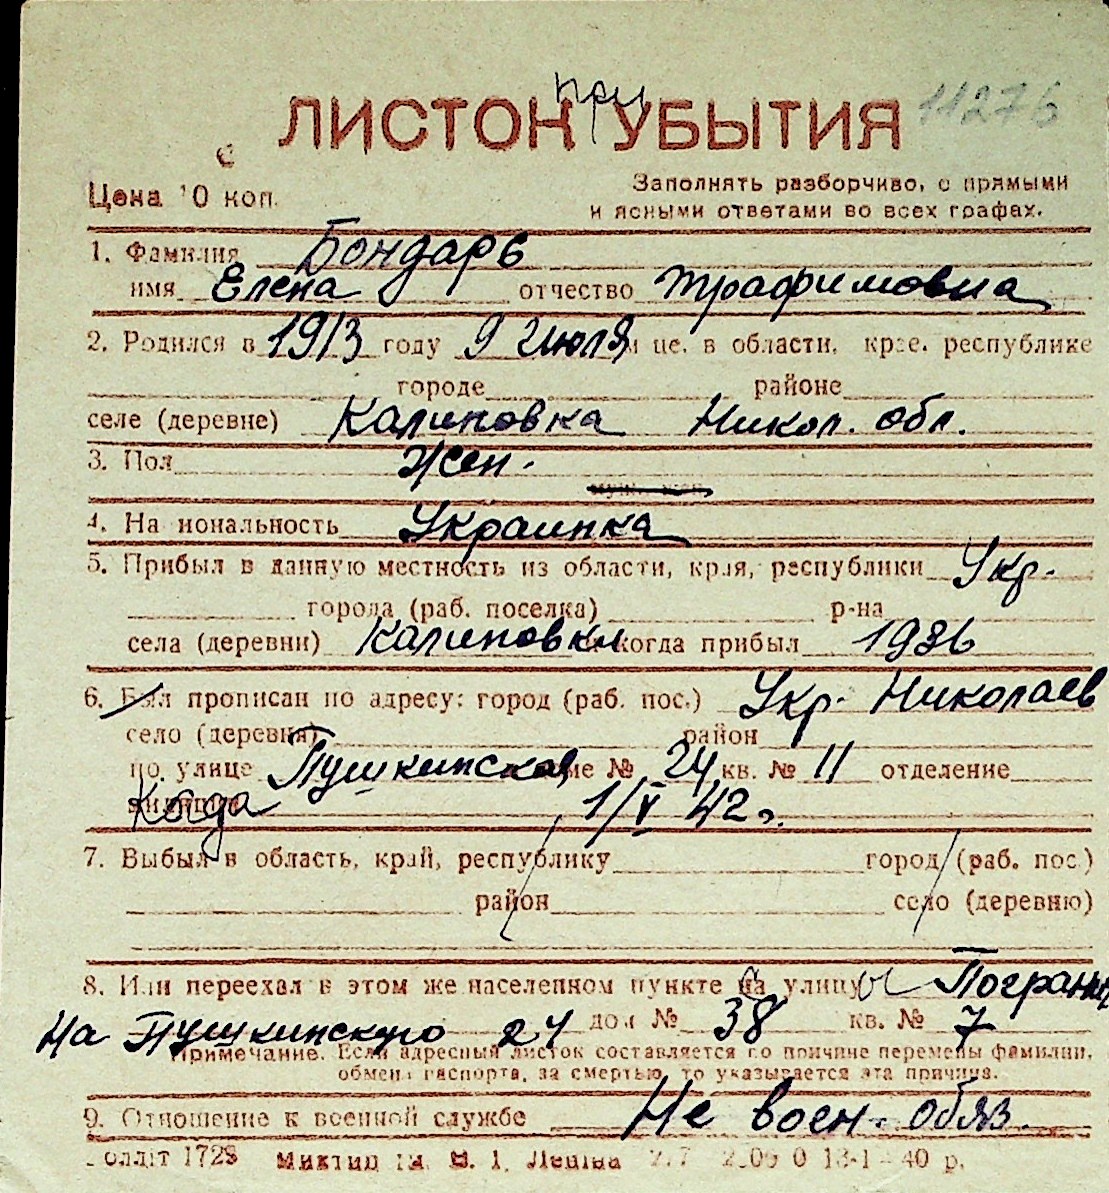 при
ЛИСТОК УБЫТИЯ 11276
Цена 10 коп.
Заполнять разборчиво, с прямыми
и ясными ответами во всех графах.
1. Фамилия Бондарь
имя Елена отчество Трафимовна
2. Родился в 1913 году 9 июля м-це, в области, крае, республике
городе районе
селе (деревне) Калиновка Никол. обл.
3. Пол Жен.
муж. жен.
4. Национальность Украинка
5. Прибыл в данную местность из области, края, республики Укр.
города (раб. поселка) р-на
села (деревни) Калиновки и когда прибыл 1936
6. Был прописан по адресу: город (раб. пос.) Укр. Николаев
село (деревня) район
по улице Пушкинская № 24 кв. № 11 отделение
милиции Когда 1/V 42 г.
7. Выбыл в область, край, республику город (раб. пос.)
район село (деревню)
8. Или переехал в этом же населенном пункте на улицу ы Погранич
На Пушкинскую 24 дом № 38 кв. № 7
Примечание. Если адресный листок составляется по причине перемены фамилии,
обмена паспорта, за смертью, то указывается эта причина.
9. Отношение к военной службе Не воен. обяз.
1728 Леніна 40 р.